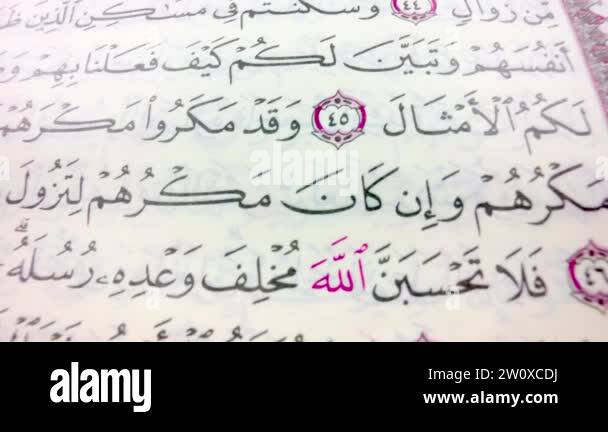 مِّن زَوَالٍ ٤٤ وَسَكَنتُمْ فِي مَسَٰكِنِ ٱلَّذِينَ
أَنفُسَهُمْ وَتَبَيَّنَ لَكُمْ كَيْفَ فَعَلْنَا بِهِمْ
لَكُمُ ٱلْأَمْثَالَ ٤٥ وَقَدْ مَكَرُوا۟ مَكْرَهُمْ
مَكْرُهُمْ وَإِن كَانَ مَكْرُهُمْ لِتَزُولَ
٤٦ فَلَا تَحْسَبَنَّ ٱللَّهَ مُخْلِفَ وَعْدِهِۦ رُسُلَهُۥٓ ۗ
alamy
Image ID: 2W0XCDJ
www.alamy.com